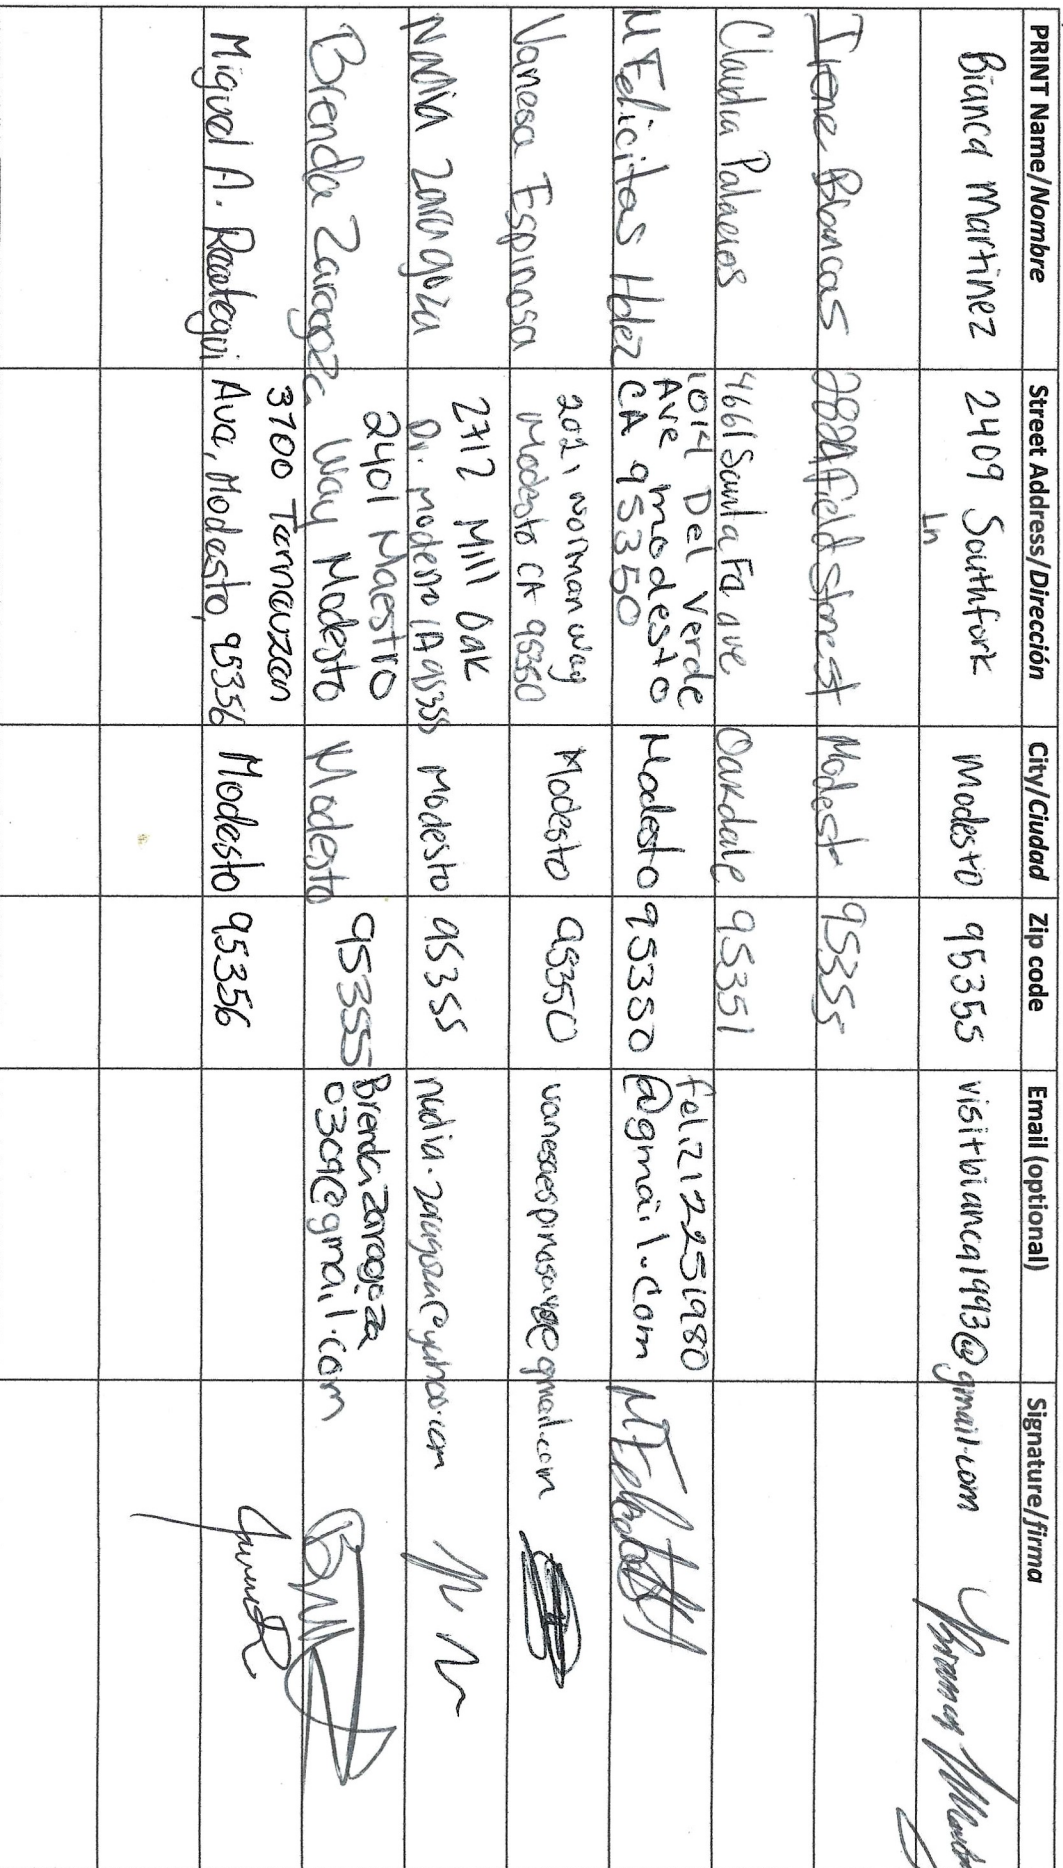 PRINT Name/Nombre Street Address/Dirección City/Ciudad Zip code Email (optional) Signature/firma
Bianca Martinez 2409 Southfork Modesto 95355 visitbianca1993@gmail.com
Ln
Irene Blancas Fieldstone st Modesto 95355
Claudia Palacios 4661 Santa Fa ave Oakdale 95351
M Felicitas Hdez 1014 Del Verde
Ave modesto
CA 95350 Modesto 95350 feliz12251980
@gmail.com
Vanesa Espinosa 2021 Norman way
Modesto CA 95350 Modesto 95350
Nadia Zaragoza 2712 Mill Oak
Dr. modesto CA 95355 Modesto 95355 nadia.zaragoza@yahoo.com
Brenda Zaragoza 2401 Maestro
Way Modesto Modesto 95355 Brenda Zaragoza
0309@gmail.com
Miguel A. 3700 Tannauzan
Ava, Modesto, 95356 Modesto 95356